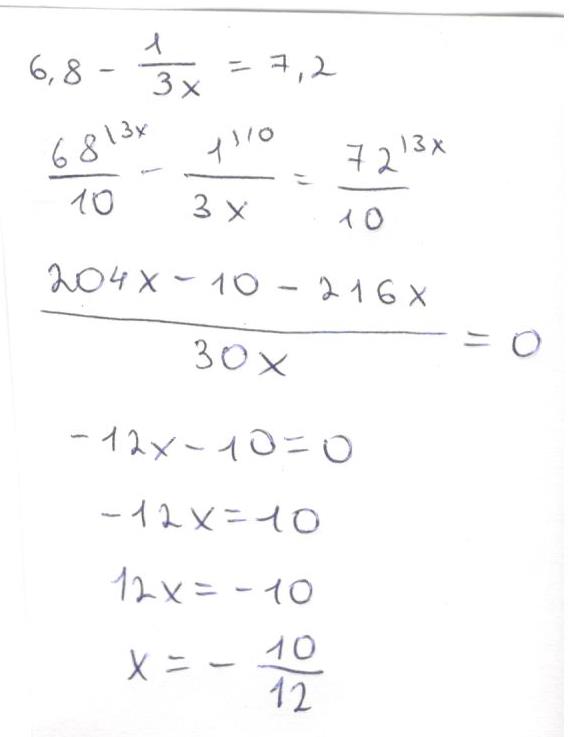 6,8 - 1/3x = 7,2
68\3x/10 - 1\10/3x = 72\3x/10
204x - 10 - 216x/30x = 0
-12x - 10 = 0
-12x = 10
12x = -10
x = - 10/12